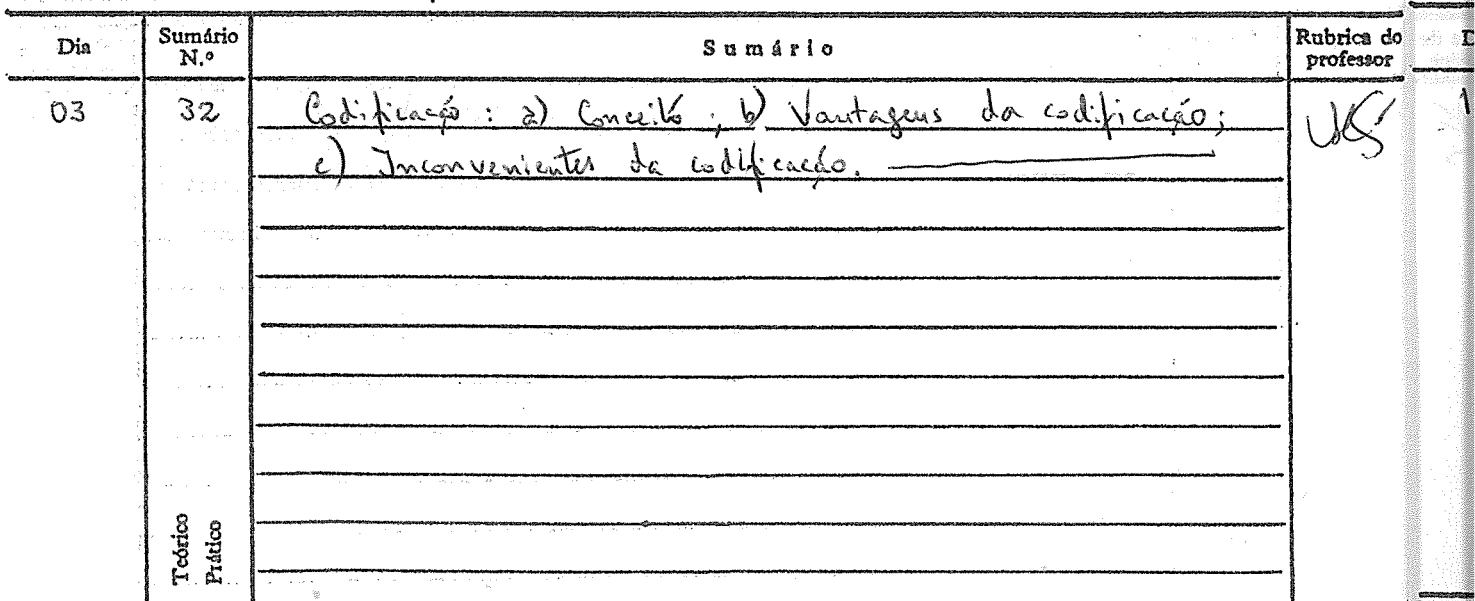 Dia Sumário N.º Sumário Rubrica do professor
03 32 Codificação : a) Conceito ; b) Vantagens da codificação;
c) Inconvenientes da codificação.
Teórico
Prático